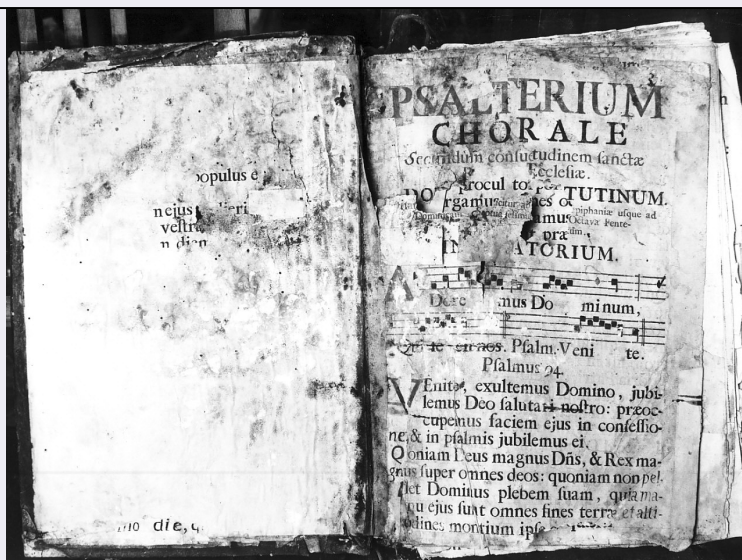 populus e
nejus
vestra
n dien
die, 4
PSALTERIUM
CHORALE
Secundum consuetudinem sanctæ
Ecclesiæ.
DO procul to TUTINUM.
rgamus nes
piphaniæ usque ad
Octava Pente-
amus
præ
IN ATORIUM.
A
Dore mus Do minum,
Qui fe cit nos. Psalm. Veni te.
Psalmus 94.
VEnite, exultemus Domino, jubi-
lemus Deo salutari nostro: præoc-
cupemus faciem ejus in confessio-
ne, & in psalmis jubilemus ei.
Quoniam Deus magnus Dñs, & Rex ma-
gnus super omnes deos: quoniam non pel-
let Dominus plebem suam, quia ma-
nu ejus sunt omnes fines terræ et alti-
dines montium ipse